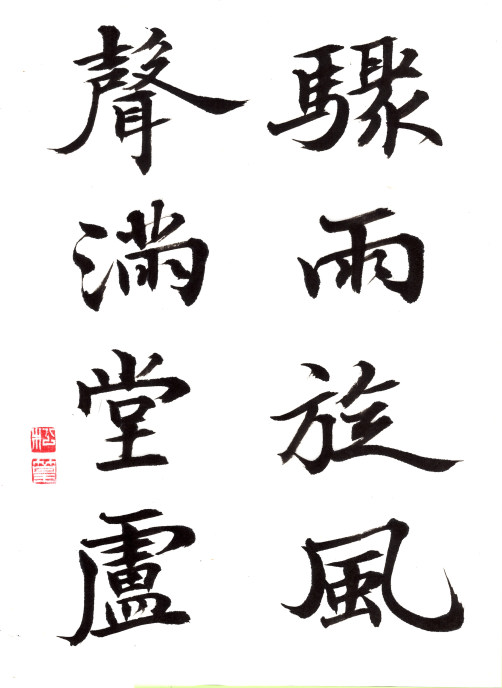 驟雨旋風
聲滿堂盧